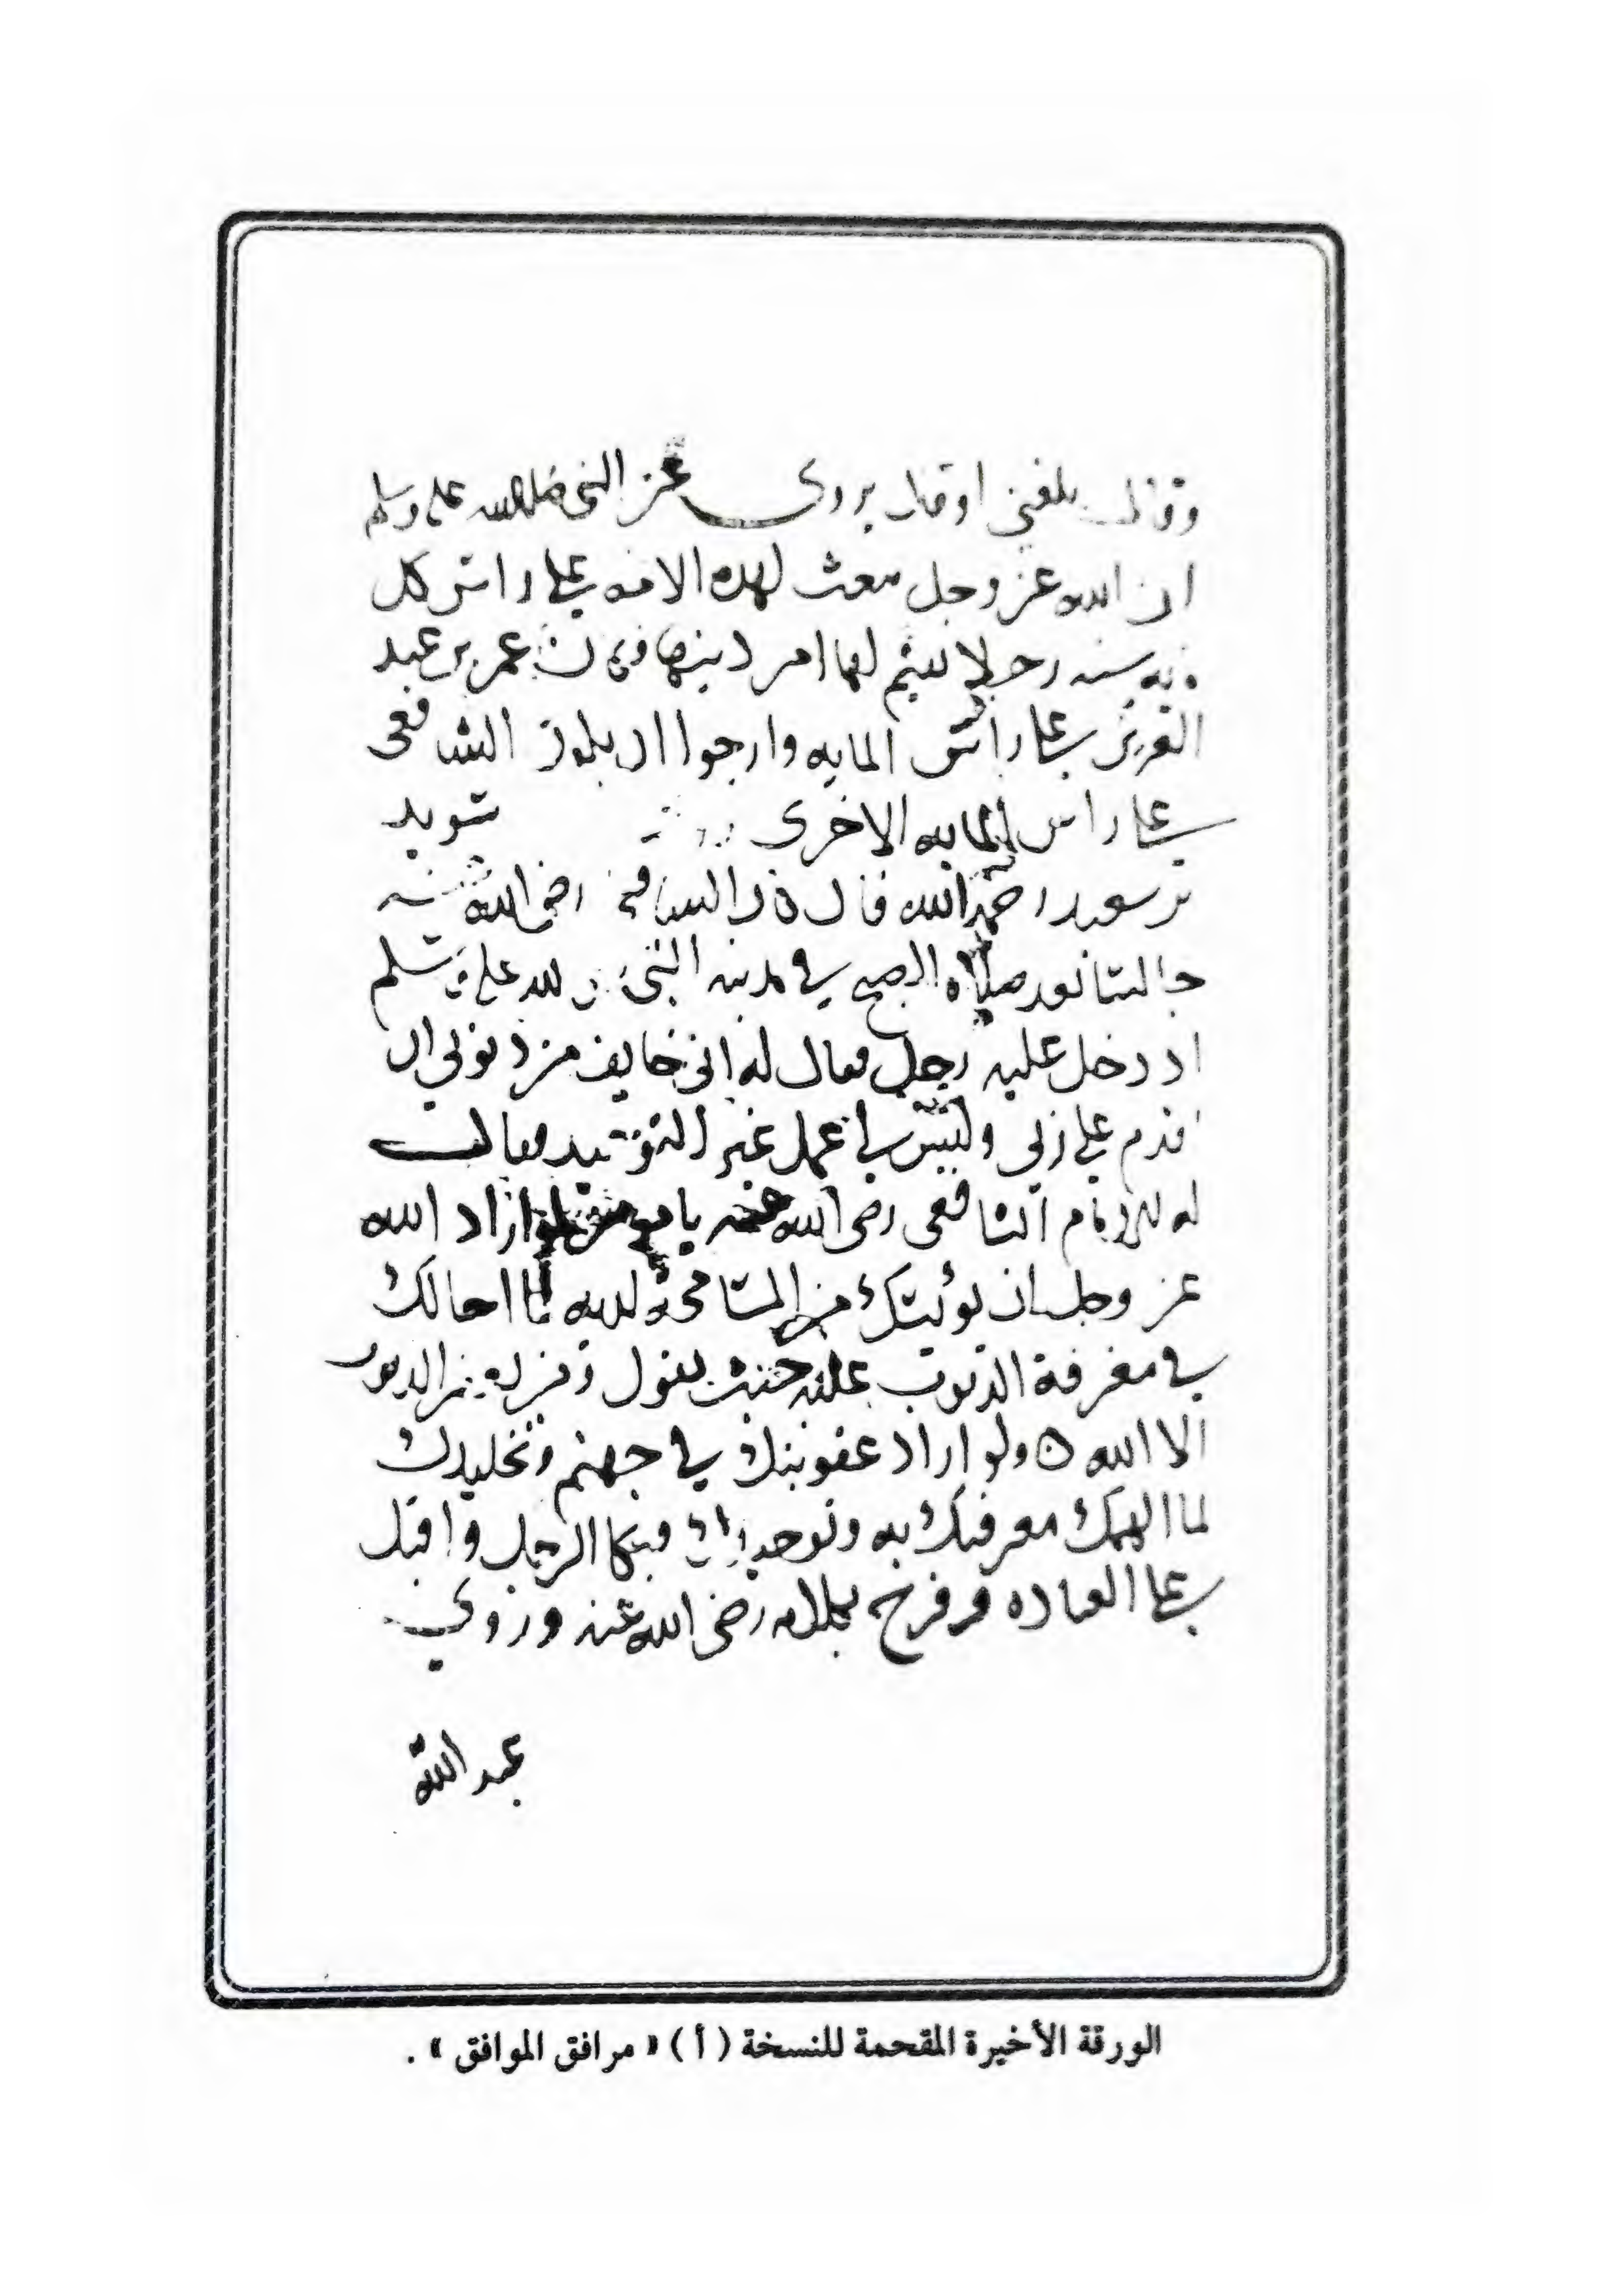 وقال بلغني او قال يروى عن النبي صلى الله عليه وسلم
ان الله عز وجل يبعث لهذه الامه على راس كل
مايه سنه رجلا يقيم لها امر دينها فكان عمر بن عبد
العزيز على راس المايه وارجوا ان يكون الشافعي
على راس المايه الاخرى سويد
بن سعيد رحمه الله قال كان الشافعي رضي الله عنه
جالسا بعد صلاه الصبح في مدينه النبي الله عليه وسلم
اذ دخل عليه رجل فقال له اني خايف من ذنوبي ان
اقدم على ربي وليس لي عمل غير التوحيد فقال
له الامام الشافعي رضي الله عنه يا لو اراد الله
عز وجل ان
في مغفرة الذنوب عليه حيث يقول ومن يغفر الذنوب
الا الله ه ولو اراد عقوبتك في جهنم وتخليدك
لما الهمك معرفتك به وتوحيدك فبكا الرجل واقبل
على العباده وفرح بكلامه رضي الله عنه وروي
عبد الله
الورقة الأخيرة المقحمة للنسخة ( أ ) « مرافق الموافق » .